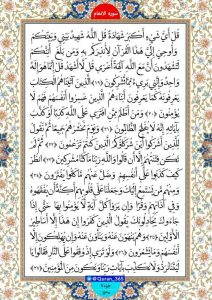 سورة الانعام
قُلْ أَىُّ شَىْءٍ أَكْبَرُ شَهَٰدَةً قُلِ ٱللَّهُ شَهِيدٌۢ بَيْنِى وَبَيْنَكُمْ
وَأُوحِىَ إِلَىَّ هَٰذَا ٱلْقُرْءَانُ لِأُنذِرَكُم بِهِۦ وَمَنۢ بَلَغَ أَئِنَّكُمْ
لَتَشْهَدُونَ أَنَّ مَعَ ٱللَّهِ ءَالِهَةً أُخْرَىٰ قُل لَّآ أَشْهَدُ قُلْ إِنَّمَا هُوَ إِلَٰهٌ
وَٰحِدٌ وَإِنَّنِى بَرِىٓءٌ مِّمَّا تُشْرِكُونَ ﴿١٩﴾ ٱلَّذِينَ ءَاتَيْنَٰهُمُ ٱلْكِتَٰبَ
يَعْرِفُونَهُۥ كَمَا يَعْرِفُونَ أَبْنَآءَهُمُ ٱلَّذِينَ خَسِرُوٓا۟ أَنفُسَهُمْ فَهُمْ لَا
يُؤْمِنُونَ ﴿٢٠﴾ وَمَنْ أَظْلَمُ مِمَّنِ ٱفْتَرَىٰ عَلَى ٱللَّهِ كَذِبًا أَوْ كَذَّبَ
بِـَٔايَٰتِهِۦٓ إِنَّهُۥ لَا يُفْلِحُ ٱلظَّٰلِمُونَ ﴿٢١﴾ وَيَوْمَ نَحْشُرُهُمْ جَمِيعًا ثُمَّ نَقُولُ
لِلَّذِينَ أَشْرَكُوٓا۟ أَيْنَ شُرَكَآؤُكُمُ ٱلَّذِينَ كُنتُمْ تَزْعُمُونَ ﴿٢٢﴾ ثُمَّ لَمْ
تَكُن فِتْنَتُهُمْ إِلَّآ أَن قَالُوا۟ وَٱللَّهِ رَبِّنَا مَا كُنَّا مُشْرِكِينَ ﴿٢٣﴾ ٱنظُرْ
كَيْفَ كَذَبُوا۟ عَلَىٰٓ أَنفُسِهِمْ وَضَلَّ عَنْهُم مَّا كَانُوا۟ يَفْتَرُونَ ﴿٢٤﴾
وَمِنْهُم مَّن يَسْتَمِعُ إِلَيْكَ وَجَعَلْنَا عَلَىٰ قُلُوبِهِمْ أَكِنَّةً أَن يَفْقَهُوهُ
وَفِىٓ ءَاذَانِهِمْ وَقْرًا وَإِن يَرَوْا۟ كُلَّ ءَايَةٍ لَّا يُؤْمِنُوا۟ بِهَا حَتَّىٰٓ إِذَا
جَآءُوكَ يُجَٰدِلُونَكَ يَقُولُ ٱلَّذِينَ كَفَرُوٓا۟ إِنْ هَٰذَآ إِلَّآ أَسَٰطِيرُ
ٱلْأَوَّلِينَ ﴿٢٥﴾ وَهُمْ يَنْهَوْنَ عَنْهُ وَيَنْـَٔوْنَ عَنْهُ وَإِن يُهْلِكُونَ إِلَّآ
أَنفُسَهُمْ وَمَا يَشْعُرُونَ ﴿٢٦﴾ وَلَوْ تَرَىٰٓ إِذْ وُقِفُوا۟ عَلَى ٱلنَّارِ فَقَالُوا۟ يَٰ
لَيْتَنَا نُرَدُّ وَلَا نُكَذِّبَ بِـَٔايَٰتِ رَبِّنَا وَنَكُونَ مِنَ ٱلْمُؤْمِنِينَ ﴿٢٧﴾
@Quran_365